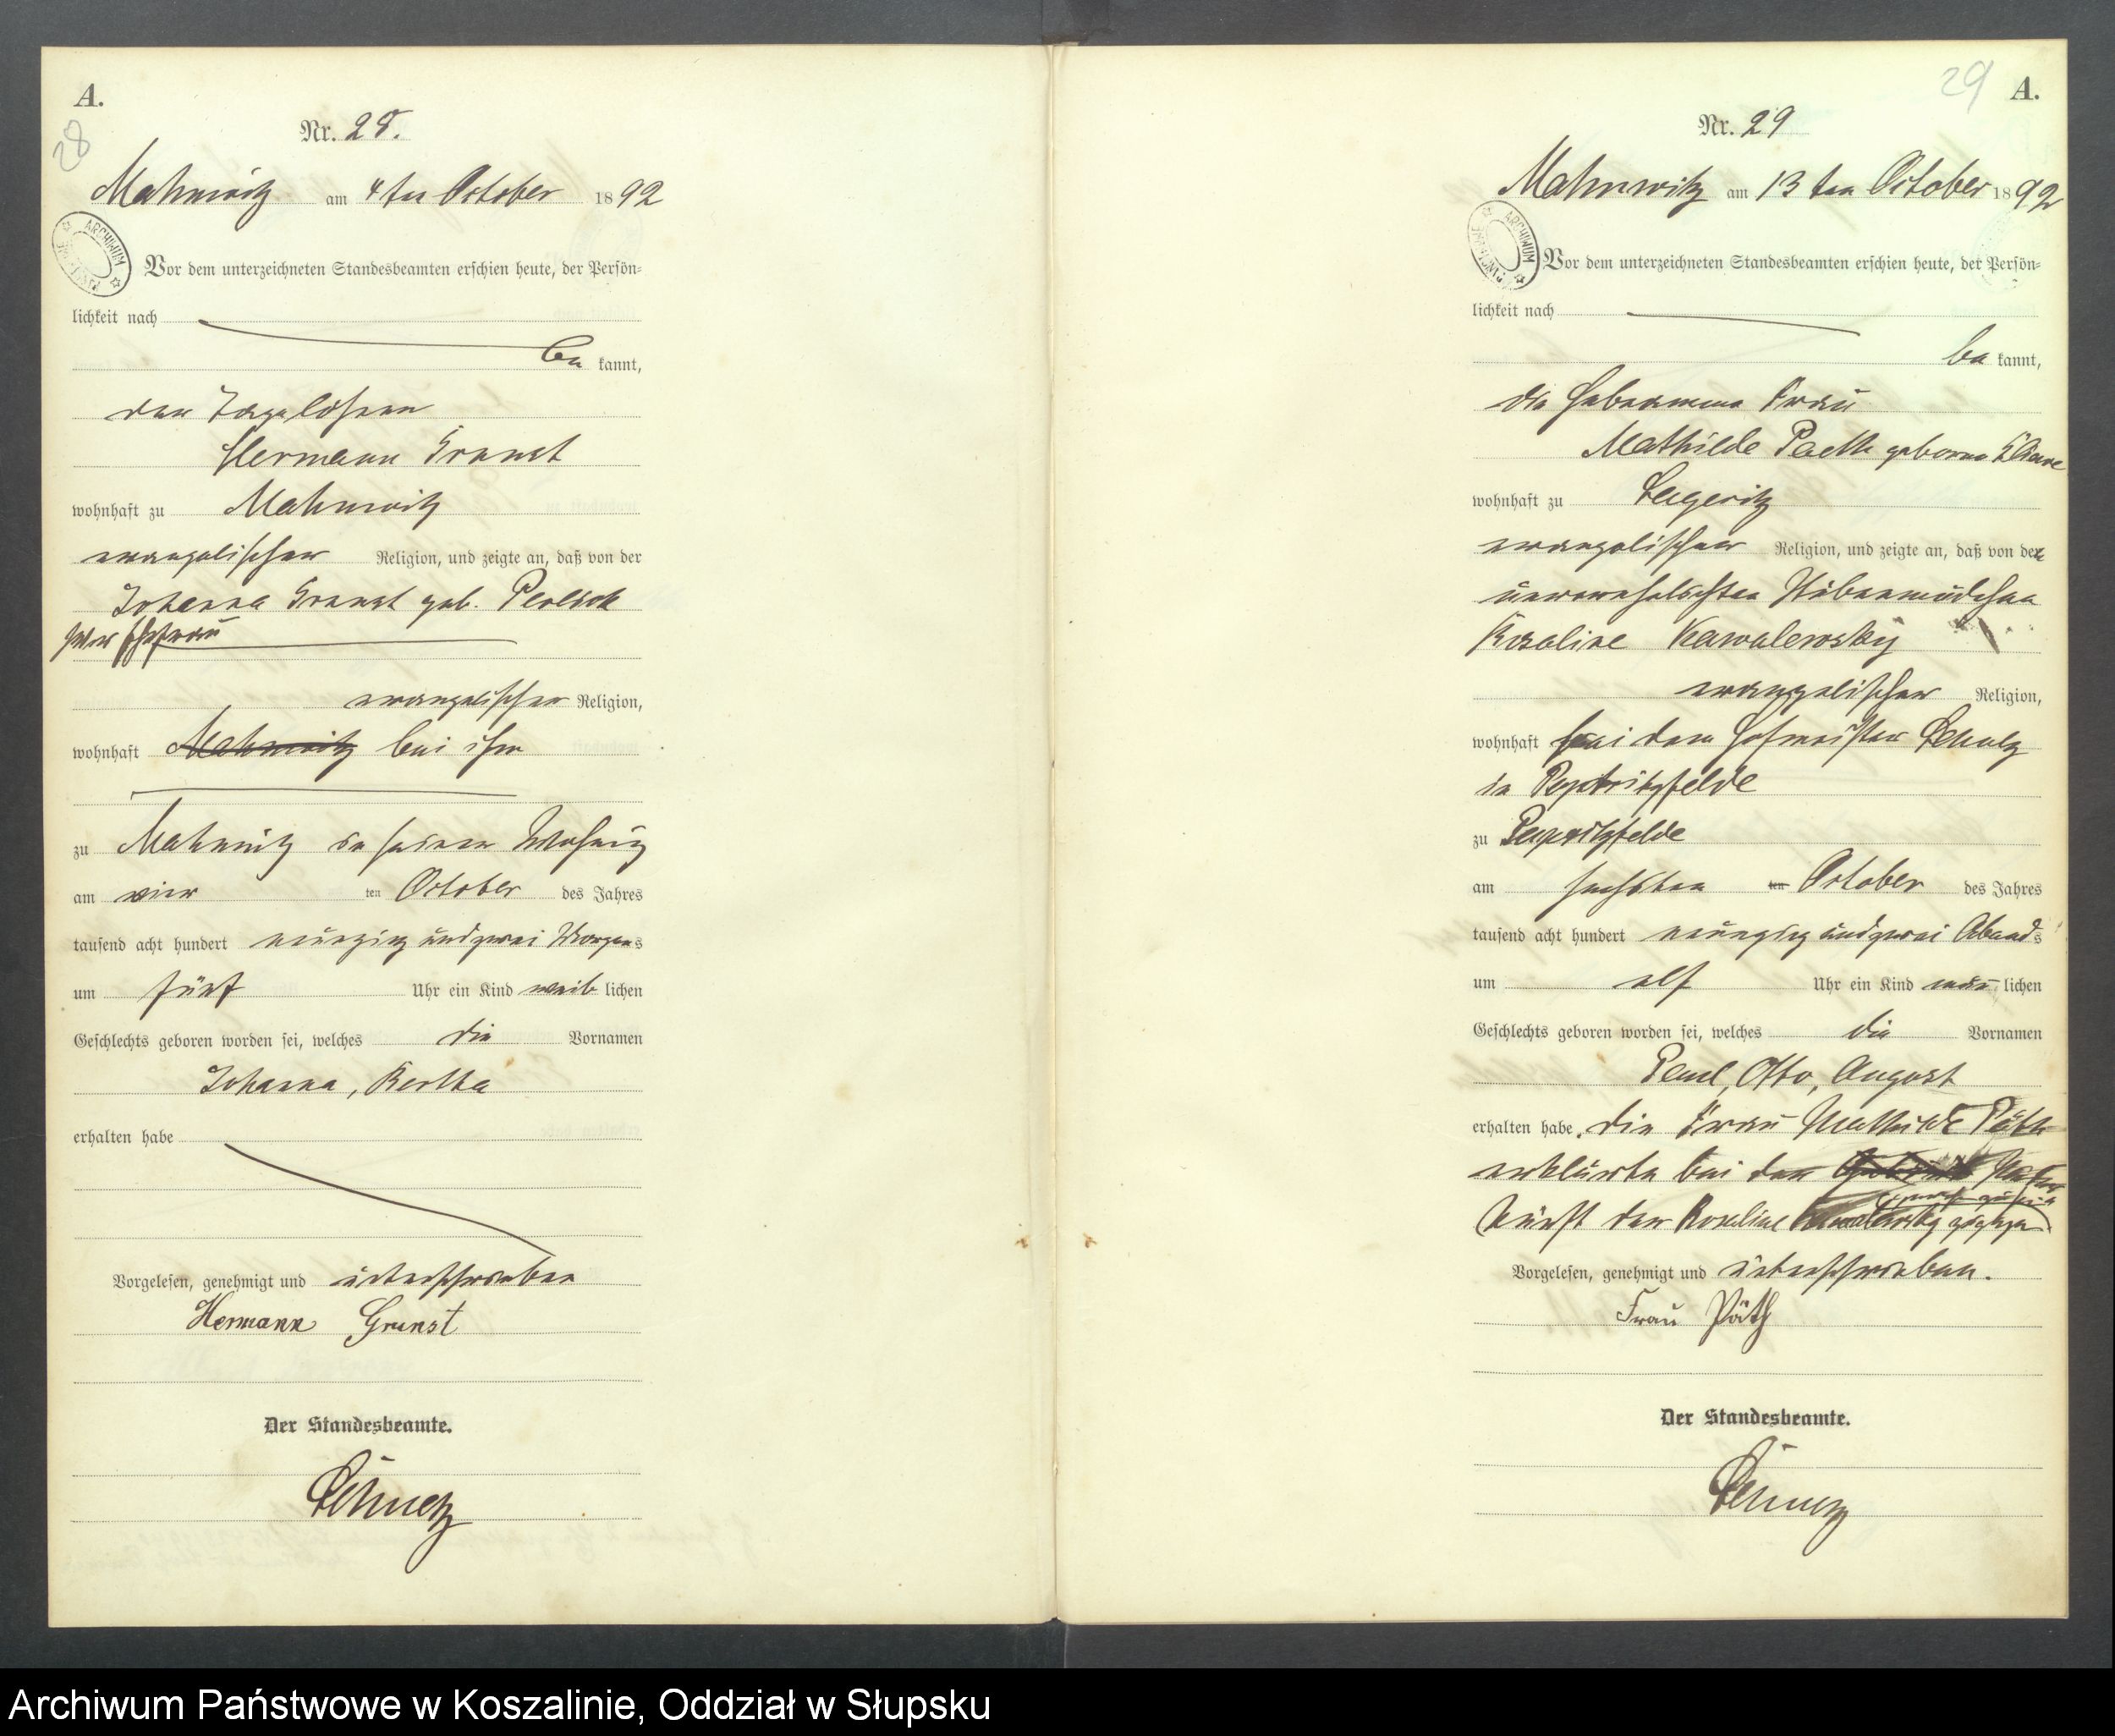 A.
28
Nr. 28.
Mahnwitz am 4ten October 1892
ARCHIWUM
Vor dem unterzeichneten Standesbeamten erschien heute, der Persön=
lichkeit nach
be kannt,
der Tagelöhner
Hermann Grunst
wohnhaft zu Mahnwitz
evangelischer Religion, und zeigte an, daß von der
Johanna Grunst geb.
seiner Ehefrau
evangelischer Religion,
wohnhaft Mahnwitz bei ihm
zu Mahnwitz in seiner Wohnung
am vier ten October des Jahres
tausend acht hundert neunzig und zwei Morgens
um fünf Uhr ein Kind weib lichen
Geschlechts geboren worden sei, welches die Vornamen
Johanna, Bertha
erhalten habe
Vorgelesen, genehmigt und unterschrieben
Hermann Grunst
Der Standesbeamte.
29 A.
Nr. 29
Mahnwitz am 13ten October 1892
ARCHIWUM
Vor dem unterzeichneten Standesbeamten erschien heute, der Persön=
lichkeit nach
be kannt,
die Hebamme Frau
Mathilde Paeth geborene
wohnhaft zu
evangelischer Religion, und zeigte an, daß von der
unverehelichten
Rosaline Kawalewsky
evangelischer Religion,
wohnhaft bei dem Hofmeister Schulz
in
zu
am sechsten ten October des Jahres
tausend acht hundert neunzig und zwei Abends
um elf Uhr ein Kind män lichen
Geschlechts geboren worden sei, welches die Vornamen
Paul, Otto, August
erhalten habe. die Frau Mathilde Päth
erklärte bei der Nieder
kunft der Rosaline Kawalewsky zugegen
Vorgelesen, genehmigt und unterschrieben.
Frau Päth
Der Standesbeamte.
Archiwum Państwowe w Koszalinie, Oddział w Słupsku